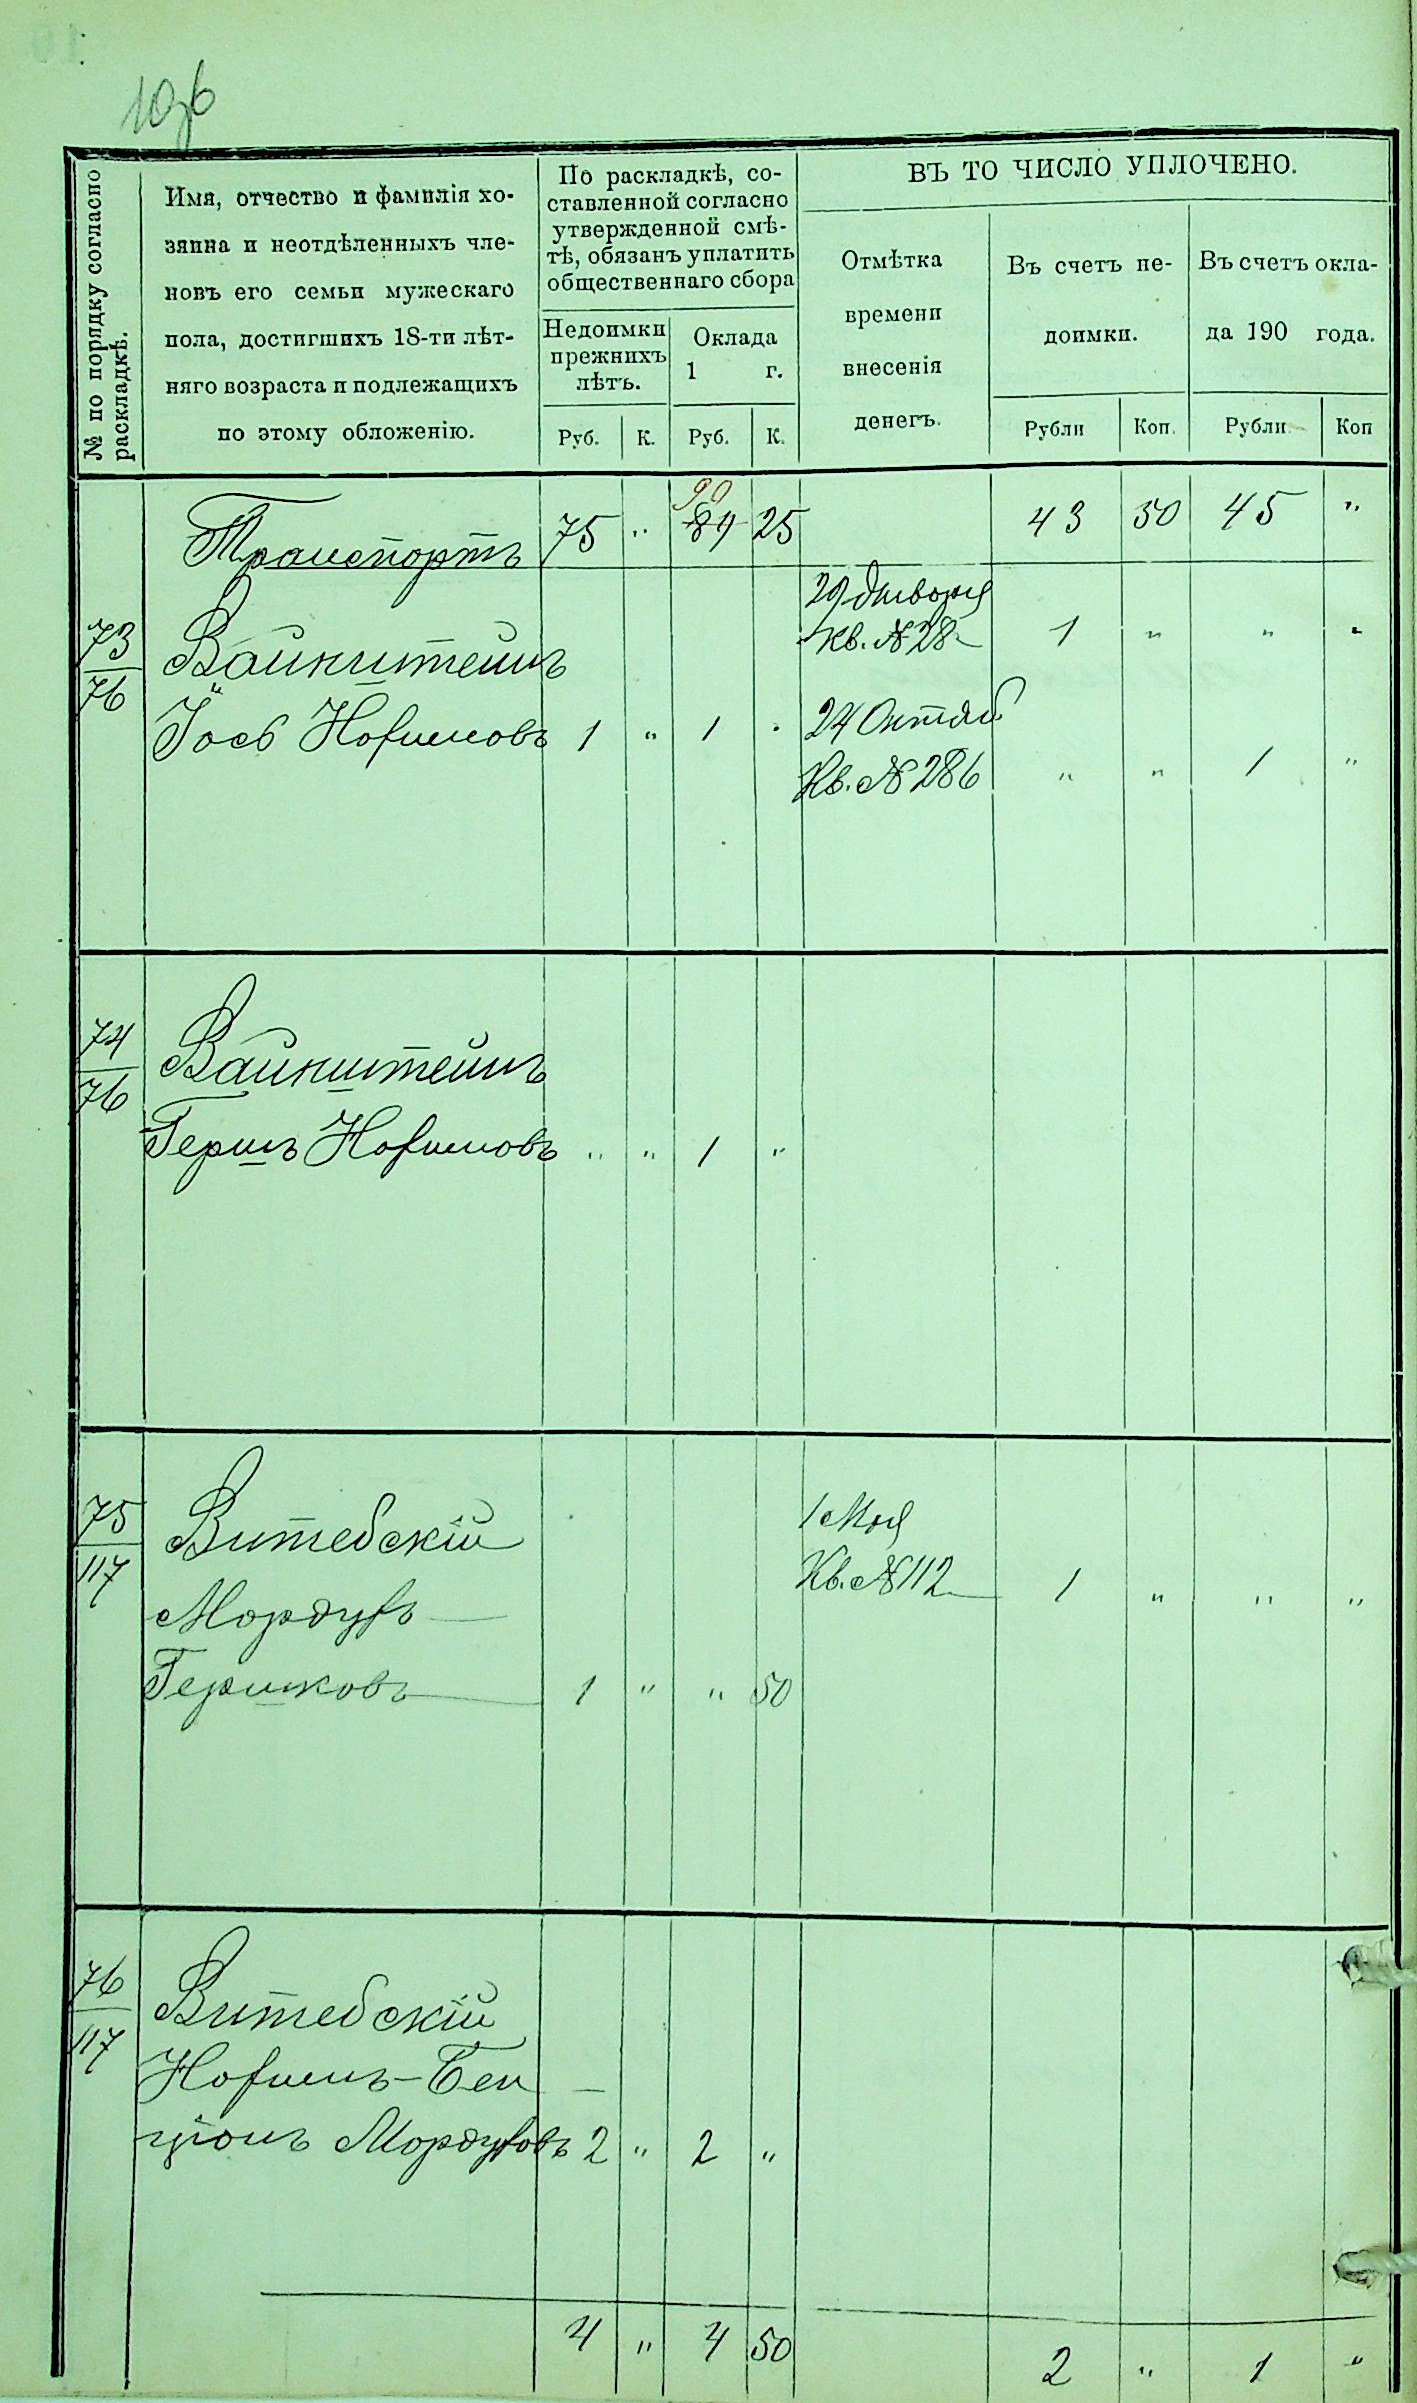 19об
№ по порядку согласно
раскладкѣ.
Имя, отчество и фамилія хо-
зяина и неотдѣленныхъ чле-
новъ его семьи мужескаго
пола, достигшихъ 18-ти лѣт-
няго возраста и подлежащихъ
по этому обложенію.
По раскладкѣ, со-
ставленной согласно
утвержденной смѣ-
тѣ, обязанъ уплатить
общественнаго сбора
Недоимки
прежнихъ
лѣтъ.
Оклада
1 г.
Руб. К. Руб. К.
ВЪ ТО ЧИСЛО УПЛОЧЕНО.
Отмѣтка
времени
внесенія
денегъ.
Въ счетъ не-
доимки.
Въ счетъ окла-
да 190 года.
Рубли Коп. Рубли Коп
90
Транспортъ 75 " 89 25 43 50 45 "
29 Января
73 Вайнштейнъ кв. №28 1 " " "
76
Іосъ Нохимовъ 1 " 1 . 24 Октяб
Кв. №286 " " 1 "
74 Вайнштейнъ
76
Гершъ Нохимовъ " " 1 "
75 Витебскій 1 Мая
117 Кв. №112 1 " " "
Мордухъ
Гершковъ 1 " " 50
76 Витебскій
117
Нохимъ-Бен
ціонъ Мордуховъ 2 " 2 "
4 " 4 50 2 " 1 "